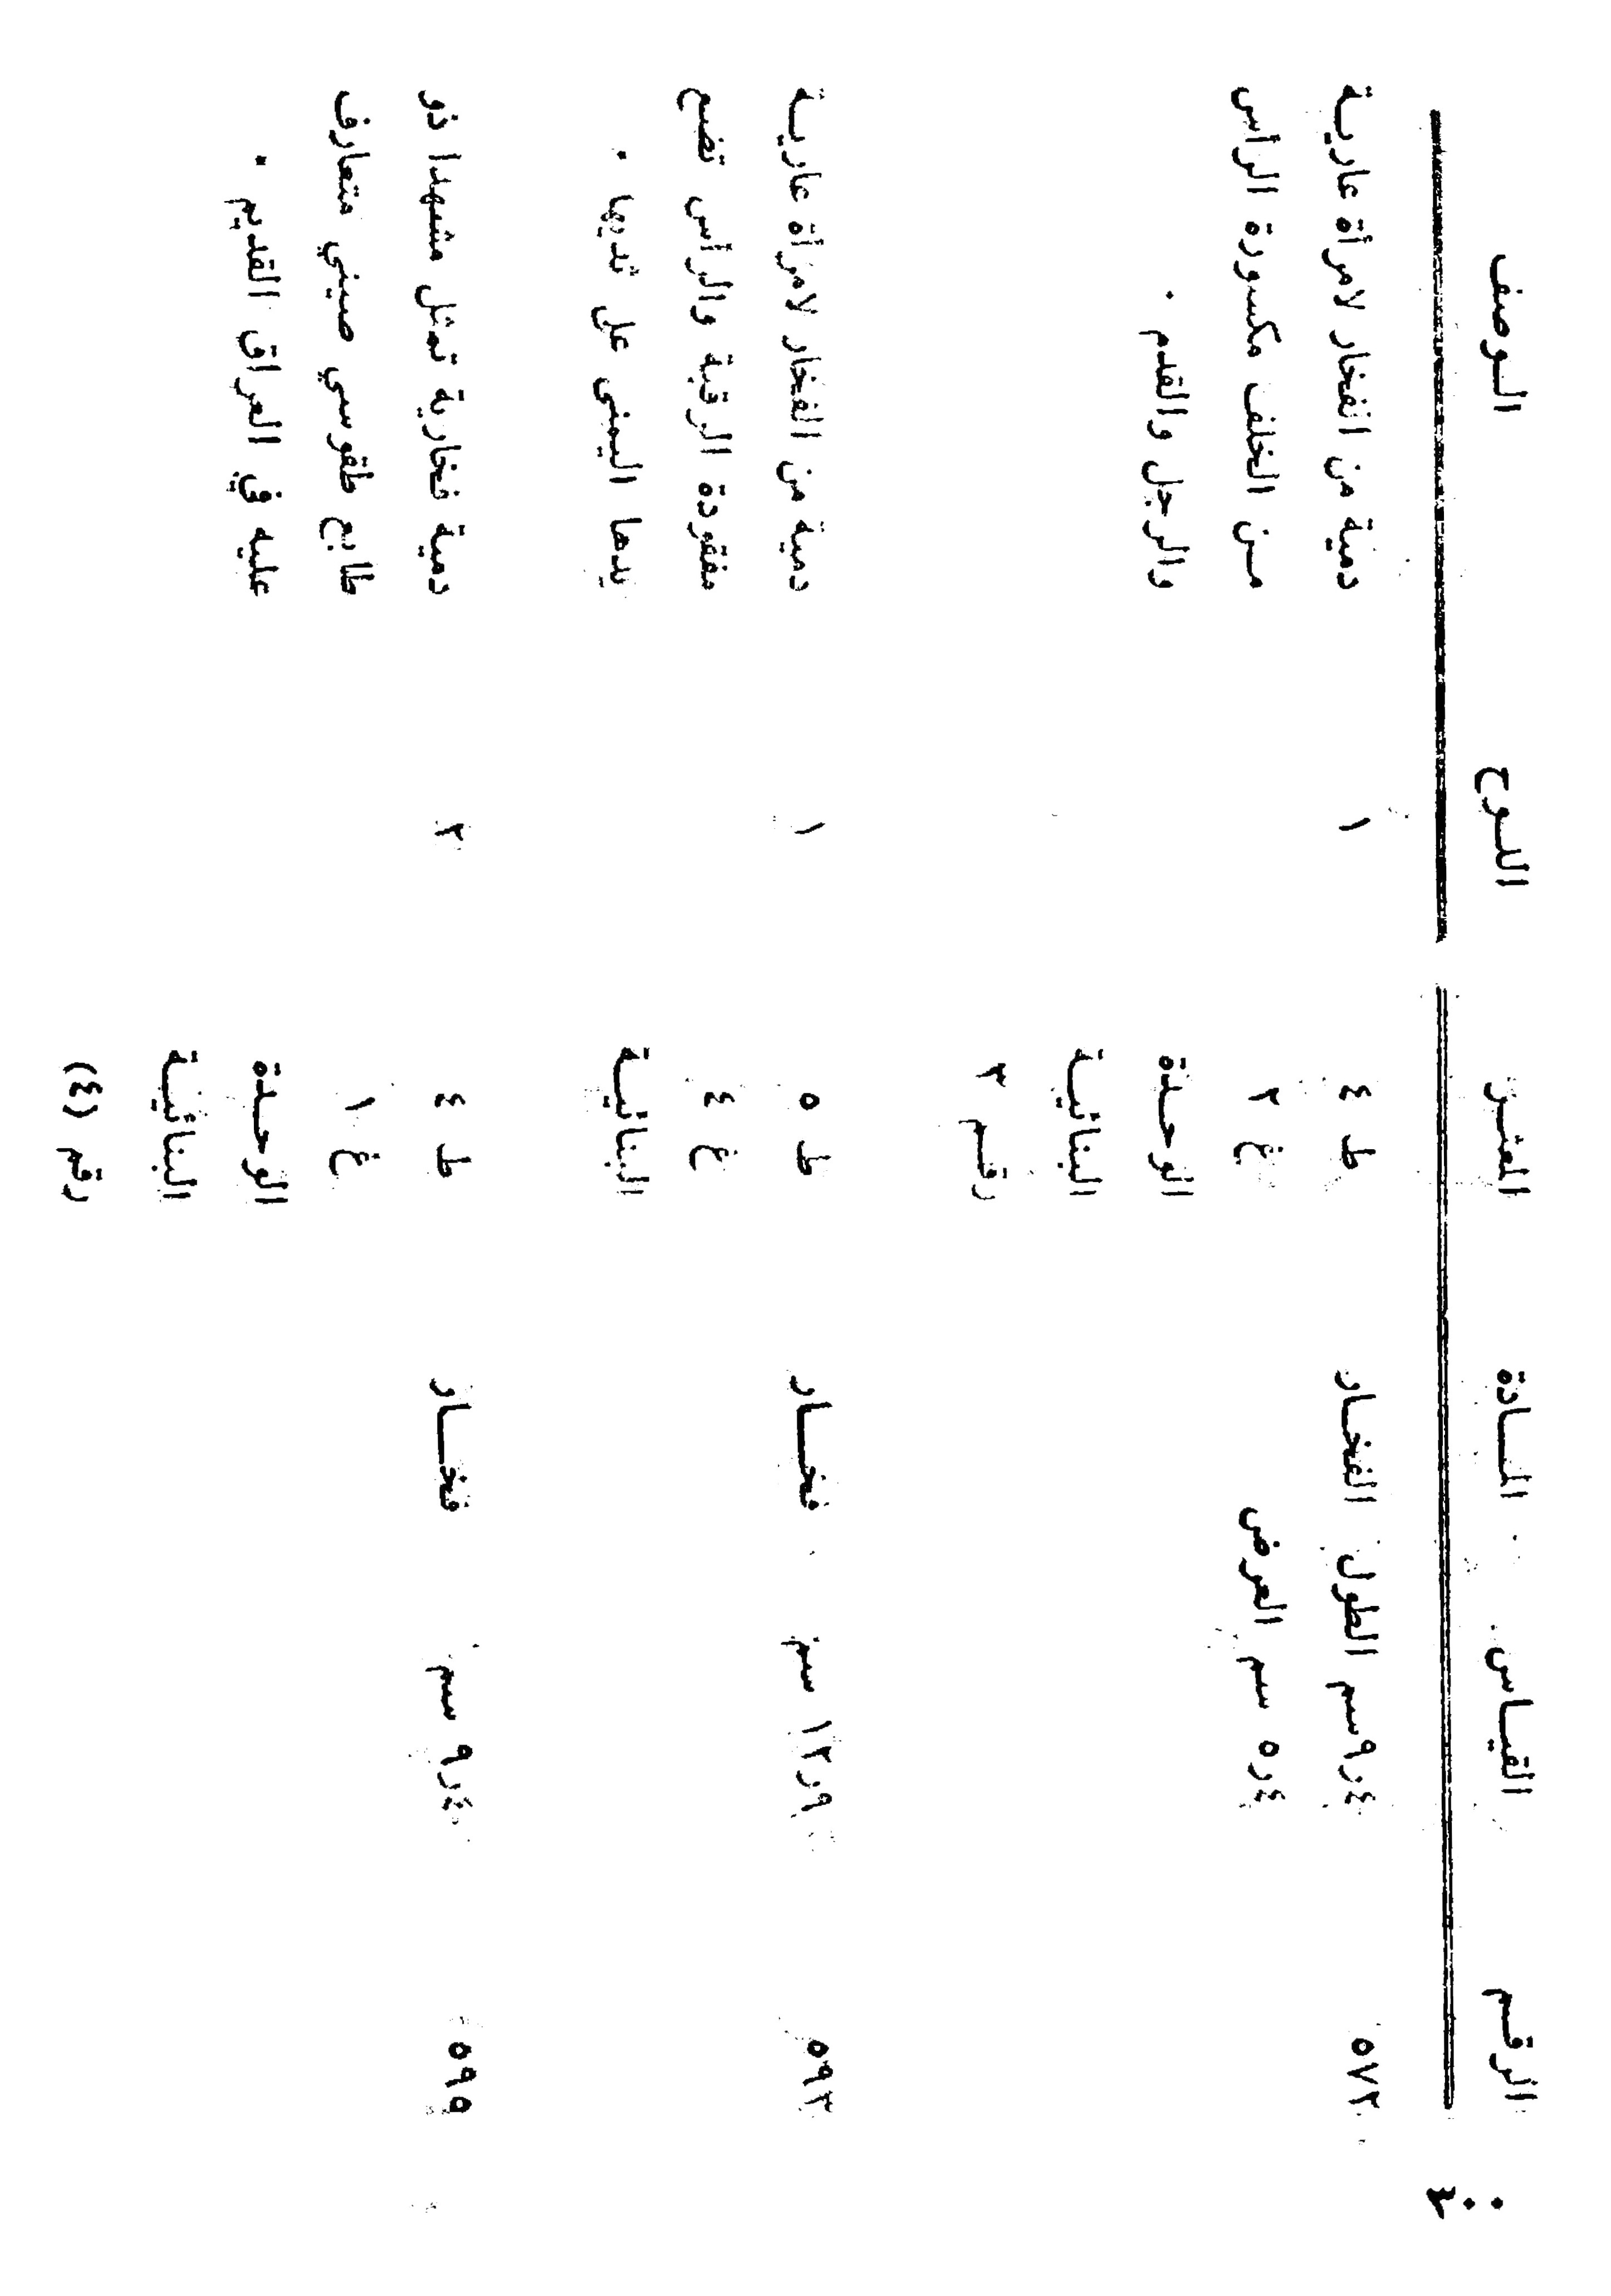 ٣٠٠
الرقم القياس المادة المعثر اللوح الوصف
٥٧٢ ٤ر٩سم الطول الفخار ط ٤ ١ دمية من الفخار لامرأة عارية
٤ر٥ سم العرض غ ٢ من الخلف مكسورة الرأس
الوحدة والرجل والقدم .
البنائية
رقم ٣
٥٩٣ ٩ر١٢ سم فخار ط ٥ ١ دمية من الفخار لامرأة عارية
غ ٤ مفقودة الرقبة والرأس تضع
البنائية يدها اليمنى على ثديها .
٥٩٥ ٤ر٩ سم فخار ط ٤ ٢ دمية فخارية تمثل مشهدا ذو
غ ١ طابع طقوسي صيني متعارف
الوحدة عليه في العراق القديم .
البنائية
رقم (٤)